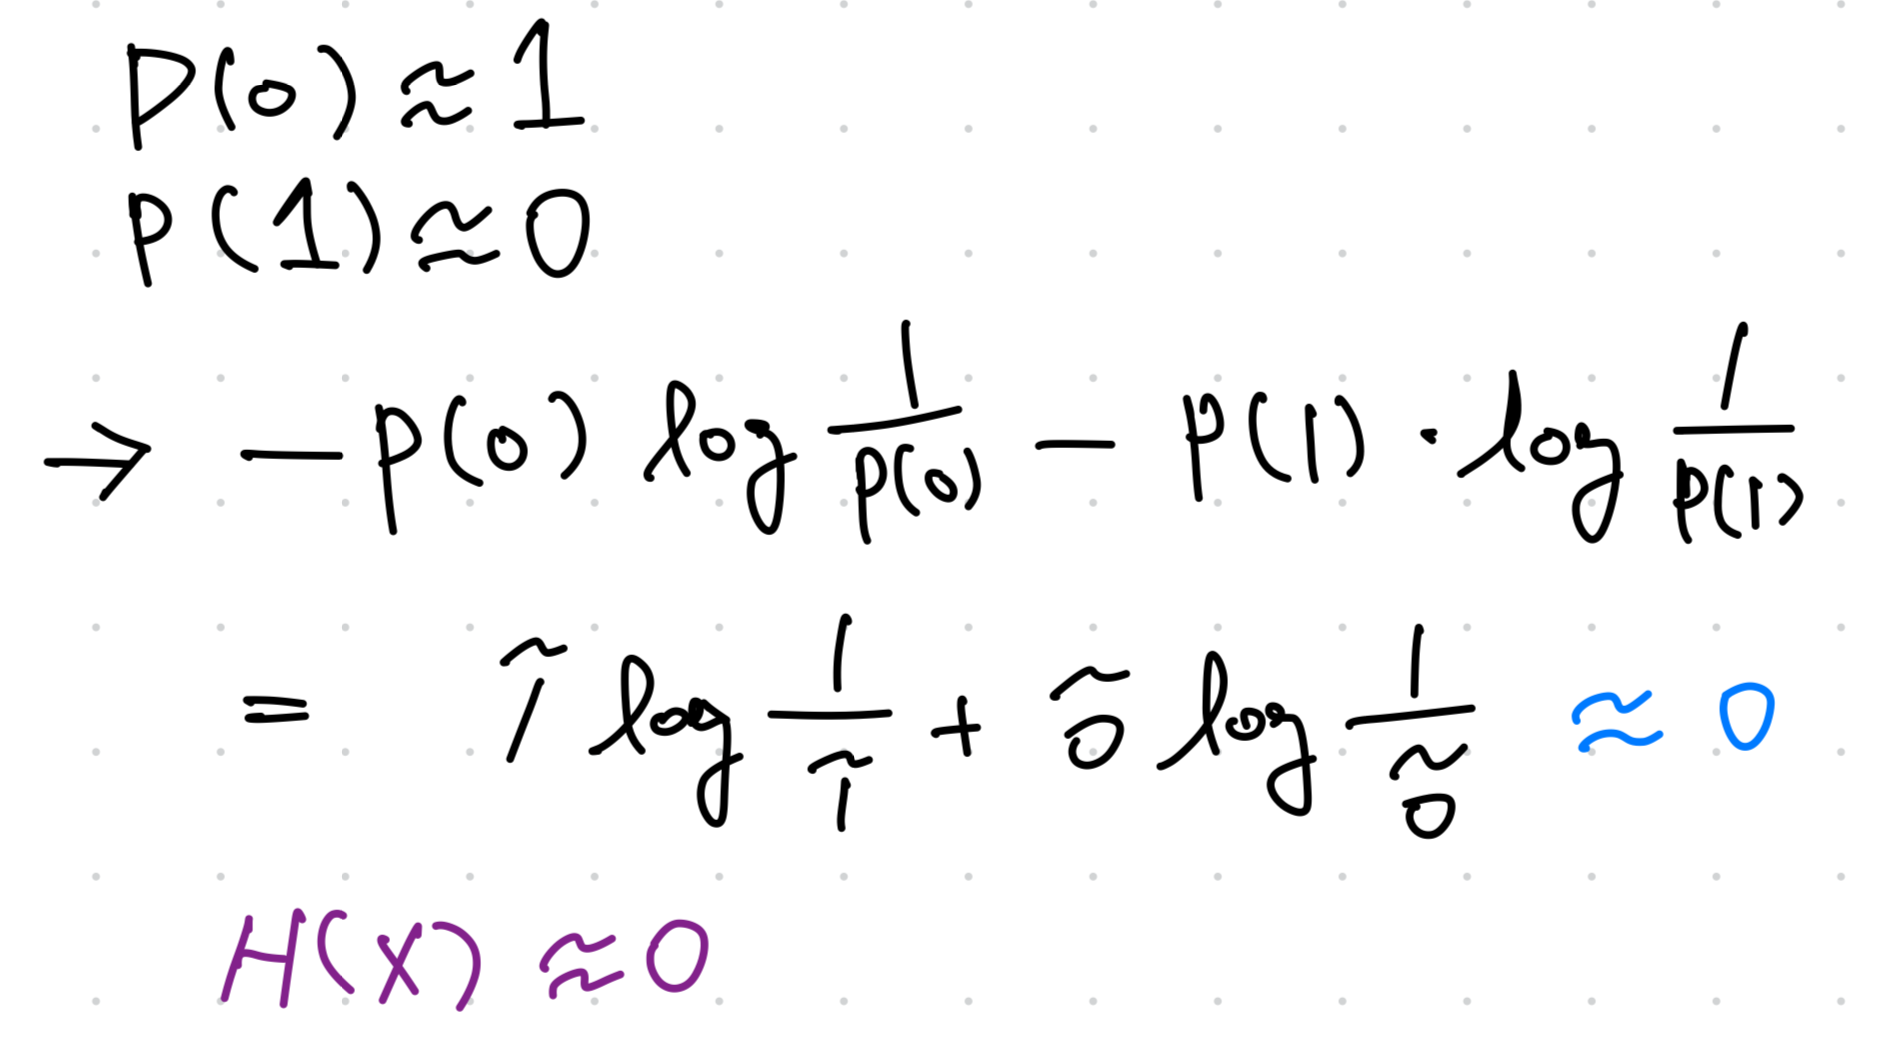 P(0) ≈ 1
P(1) ≈ 0
→ − P(0) log 1/P(0) − P(1) · log 1/P(1)
= 1̃ log 1/1̃ + 0̃ log 1/0̃ ≈ 0
H(X) ≈ 0